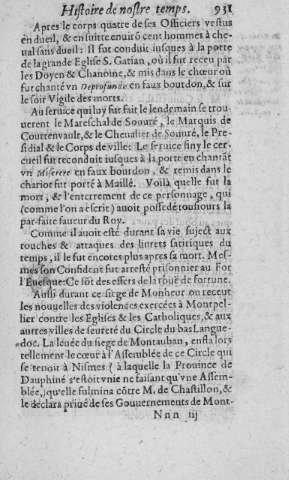 Histoire de nostre temps. 931
Apres le corps quatre de ses Officiers vestus
en dueil, & en suitte enuirō cent hommes à che-
ual sans dueil: Il fut conduit iusques à la porte
de la grande Eglise S. Gatian, où il fut receu par
les Doyen & Chanoine, & mis dans le chœur où
fut chanté vn Deprofundis en faux bourdon, & sur
le soir Vigile des morts.
Au seruice qui luy fut fait le lendemain se trou-
uerent le Mareschal de Souuré, le Marquis de
Courtenvault, & le Cheualier de Souuré, le Pre-
sidial & le Corps de ville: Le seruice finy le cer-
cueil fut reconduit iusques à la porte en chantāt
vn Miserere en faux bourdon, & remis dans le
chariot fut porté à Maillé. Voilà quelle fut la
mort, & l'enterrement de ce personnage, qui
(comme l'on a escrit) auoit possedé tousiours la
par-faite faueur du Roy.
Comme il auoit esté durant sa vie, suject aux
touches & attaques des liurets satiriques du
temps, il le fut encores plus apres sa mort. Mes-
mes son Confident fut arresté prisonnier au For
l'Euesque: Ce sōt des effets de la rouë de fortune.
Ainsi durant ce siege de Monheur on receut
les nouuelles des violences exercées à Montpel-
lier contre les Eglises & les Catholiques, & aux
autres villes de seureté du Circle du bas Langue-
doc. La leuée du siege de Montauban, ensla lors
tellement le cœur à l'Assemblée de ce Circle qui
se tenoit à Nismes (à laquelle la Prouince de
Dauphiné s'estoit vnie ne faisant qu'vne Assem-
blée,) qu'elle fulmina cōtre M. de Chastillon, &
le declara priué de ses Gouuernements de Mont-
Nnn iij